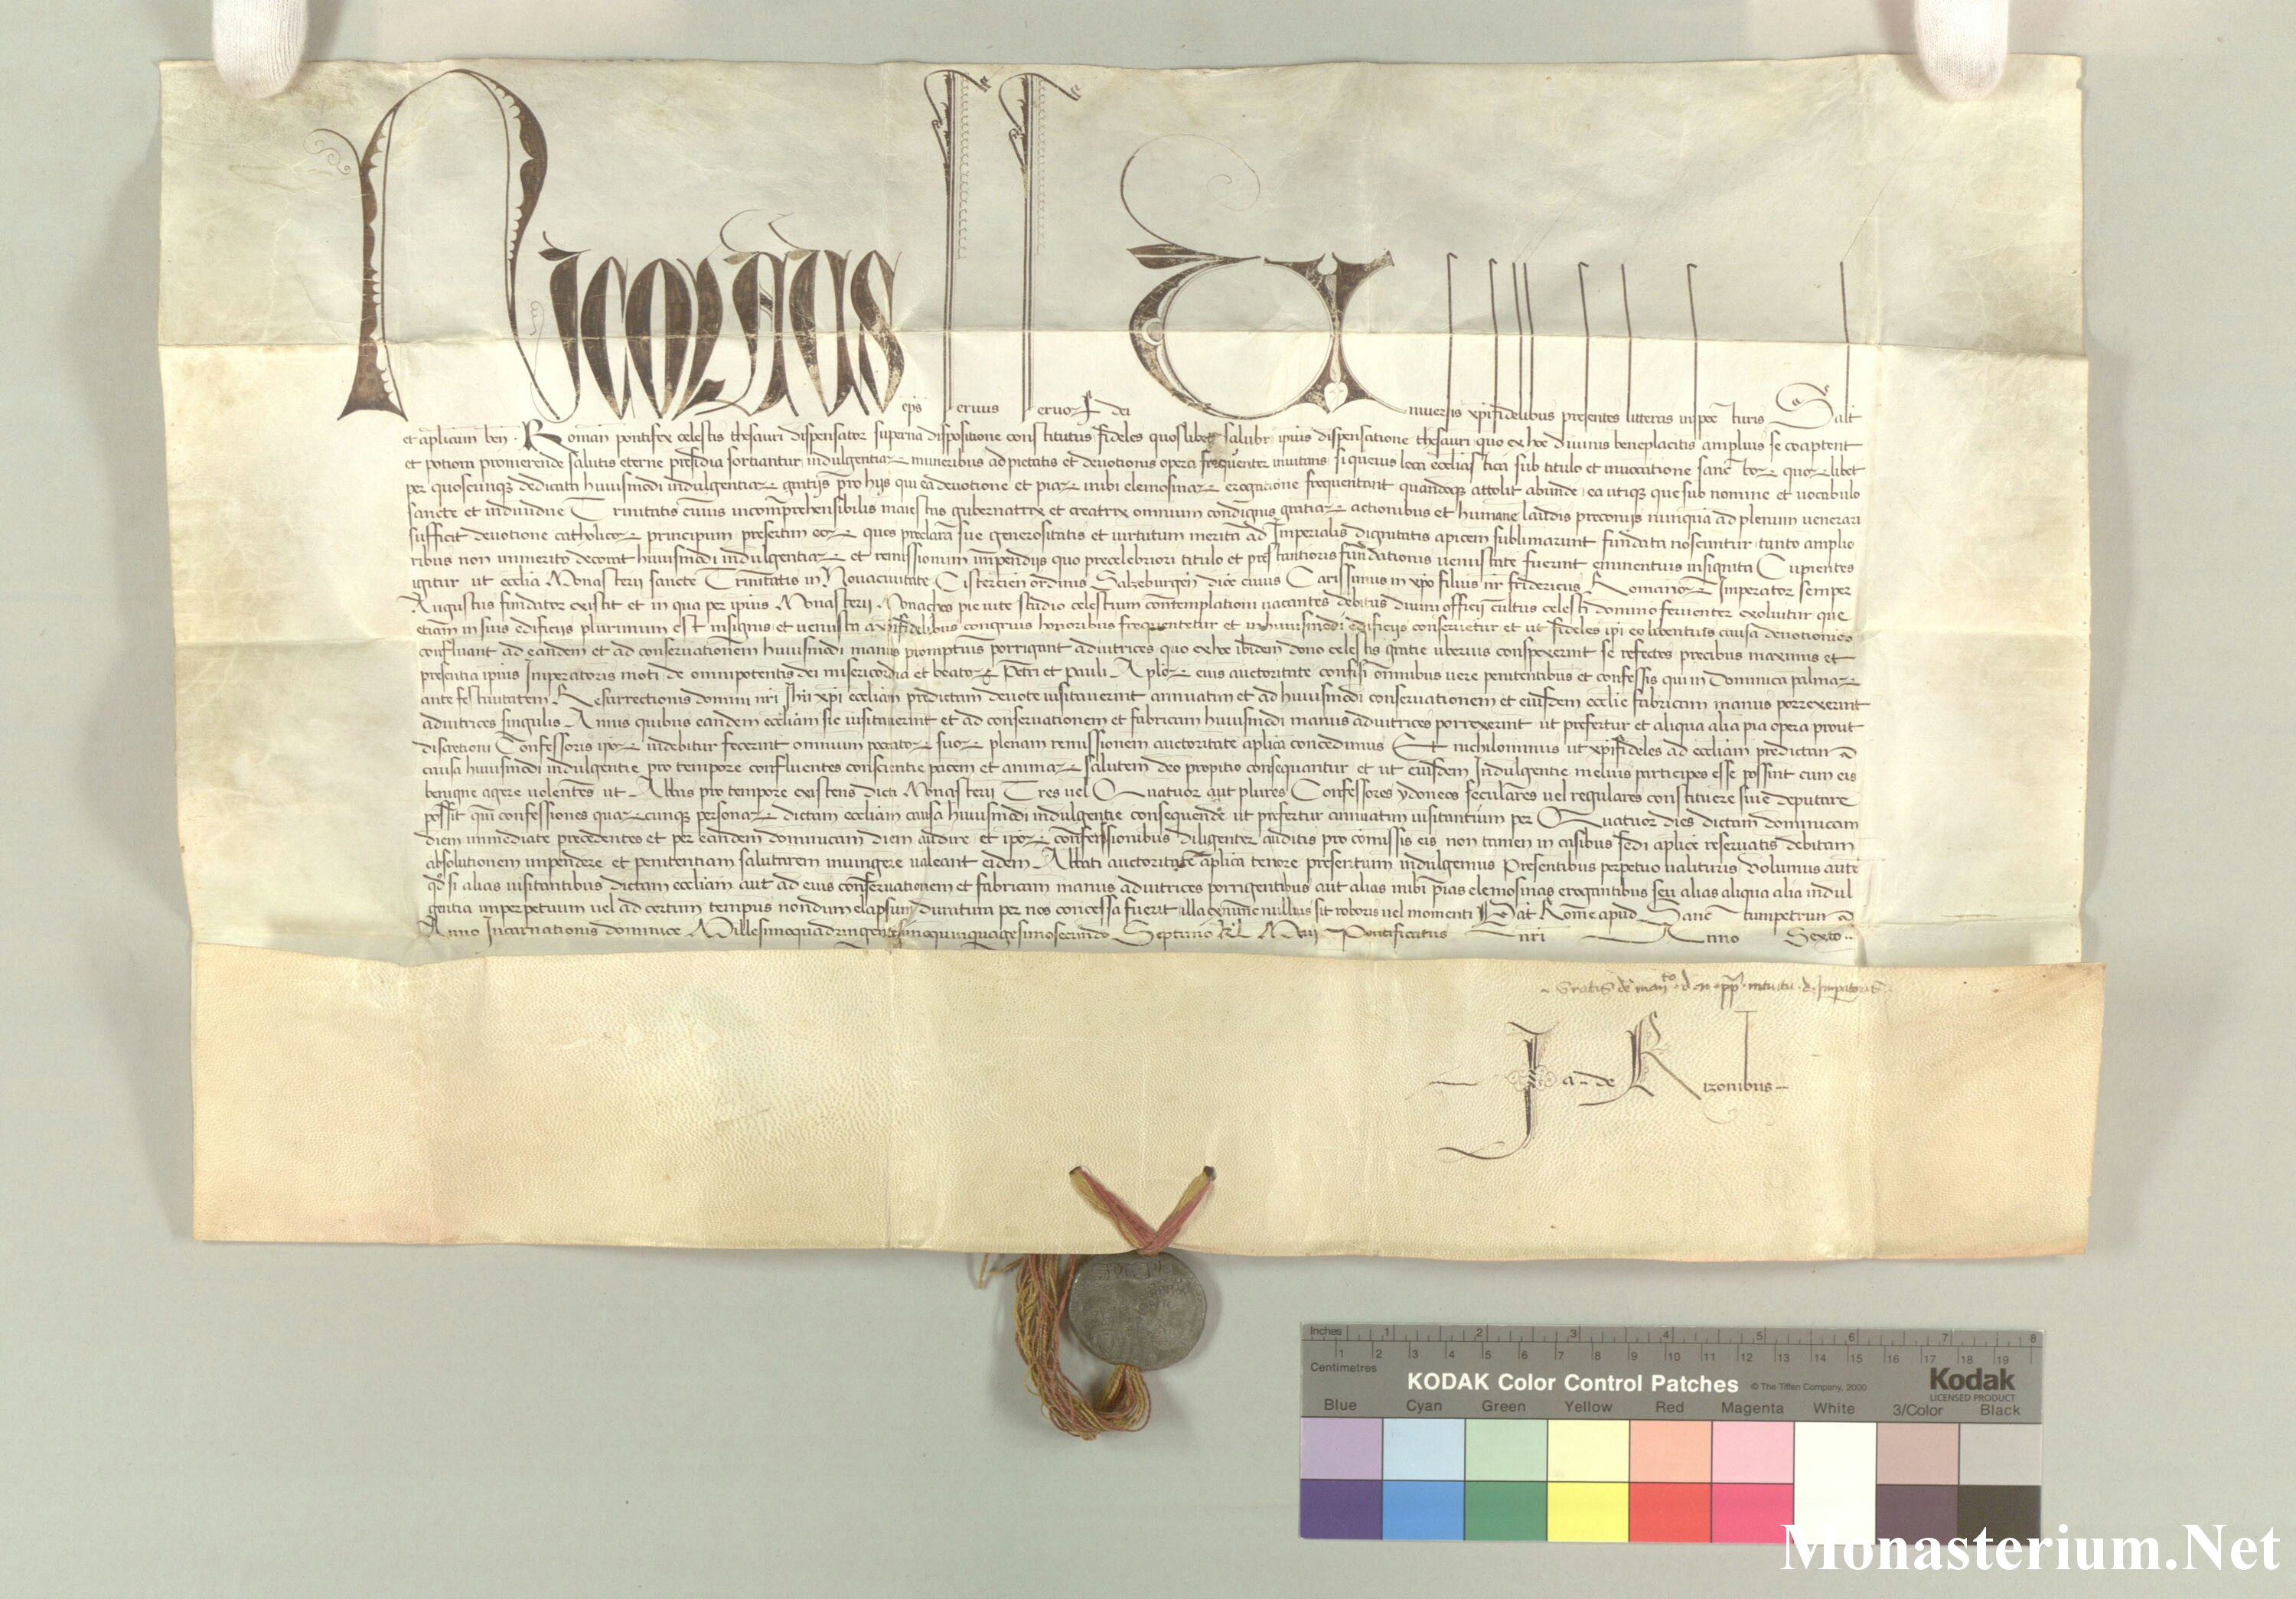 Nicolaus eps servus servoꝝ dei Universis xpifidelibus presentes litteras inspecturis Salt
et aplicam ben. Roman pontifex celestis thesauri dispensator superna dispositione constitutus fideles quoslibet salubri ipius dispensatione thesauri quo ex hoc divinis beneplacitis amplius se coaptent
et potiora promerende salutis eterne presidia sortiantur indulgentiaꝝ muneribus ad pietatis et devotionis opera frequenter invitans si quevis loca ecclesiastica sub titulo et invocatione sanctoꝝ quoꝝlibet
per quoscunqꝫ dedicata huiusmodi indulgentiaꝝ gratijs pro hijs qui ea devotione et piaꝝ inibi elemosinaꝝ erogatione frequentant quandoqꝫ attolit abunde ea utiqꝫ que sub nomine et vocabulo
sancte et individue Trinitatis cuius incomprehensibilis maiestas gubernatrix et creatrix omnium condignis gratiaꝝ actionibus et humane laudis preconijs nunquam ad plenum venerari
sufficit devotione catholicoꝝ principum presertim eoꝝ quos preclara sue generositatis et virtutum merita ad Imperialis dignitatis apicem sublimarunt fundata noscuntur tanto amplio
ribus non immerito decorat huiusmodi indulgentiaꝝ et remissionum impendijs quo precelebriori titulo et prestantioris fundationis venustate fuerint eminentius insignita Cupientes
igitur ut ecclia Monasterii sancte Trinitatis in Novacivitate Cistercien ordinis Salzeburgen dioc cuius Carissimus in xpo filius nr fridericus Romanoꝝ Imperator semper
Augustus fundator existit et in qua per ipius Monasterii Monachos pie vite studio celestium contemplationi vacantes debitus divini officij cultus celesti domino ferventer exolvitur que
etiam in suis edificijs plurimum est insignis et venusta a xpifidelibus congruis honoribus frequentetur et in huiusmodi edificijs conservetur et ut fideles ipi eo libentius causa devotionis
confluant ad eandem et ad conservationem huiusmodi manus promptius porrigant adiutrices quo ex hoc ibidem dono celestis gratie uberius conspexerint se refectos precibus maximis et
presentia ipius Imperatoris moti de omnipotentis dei misericordia et beatoꝝ Petri et Pauli Aploꝝ eius auctoritate confisi omnibus vere penitentibus et confessis qui in Dominica palmaꝝ
ante festivitatem Resurrectionis domini nri Jhu xpi eccliam predictam devote visitaverint annuatim et ad huiusmodi conservationem et eiusdem ecclie fabricam manus porrexerint
adiutrices singulis Annis quibus eandem eccliam sic visitaverint et ad conservationem et fabricam huiusmodi manus adiutrices porrexerint ut prefertur et aliqua alia pia opera prout
discretioni Confessoris ipoꝝ videbitur fecerint omnium peccatoꝝ suoꝝ plenam remissionem auctoritate aplica concedimus Et nichilominus ut xpifideles ad eccliam predictam
causa huiusmodi indulgentie pro tempore confluentes conscientie pacem et animaꝝ salutem deo propitio consequantur et ut eiusdem Indulgentie melius participes esse possint cum eis
benigne agere volentes ut Abbas pro tempore existens dicti Monasterii Tres vel Quatuor aut plures Confessores ydoneos seculares vel regulares constituere sive deputare
possit qui confessiones quaꝝcunqꝫ personaꝝ dictam eccliam causa huiusmodi indulgentie consequende ut prefertur annuatim visitantium per Quatuor dies dictam dominicam
diem immediate precedentes et per eandem dominicam diem audire et ipoꝝ confessionibus diligenter auditis pro comissis eis non tamen in casibus sedi aplice reservatis debitam
absolutionem impendere et penitentiam salutarem iniungere valeant eidem Abbati auctoritate aplica tenore presentium indulgemus Presentibus perpetuo valituris Volumus aute
qd si alias visitantibus dictam eccliam aut ad eius conservationem et fabricam manus adiutrices porrigentibus aut alias inibi pias elemosinas erogantibus seu alias aliqua alia indul
gentia imperpetuum vel ad certum tempus nondum elapsum duratura per nos concessa fuerit illa exnunc nullius sit roboris vel momenti Dat Rome apud Sanctumpetrum
Anno Incarnationis dominice Millesimoquadringentesimoquinquagesimosecundo Septimo kl Maii Pontificatus nri Anno Sexto
Gratis de manto d. n. pp. intuitu d. Imperatoris
Ja. de Rizonibus
Inches 1 2 3 4 5 6 7 8
1 2 3 4 5 6 7 8 9 10 11 12 13 14 15 16 17 18 19
Centimetres
KODAK Color Control Patches © The Tiffen Company, 2000 Kodak
LICENSED PRODUCT
Blue Cyan Green Yellow Red Magenta White 3/Color Black
Monasterium.Net